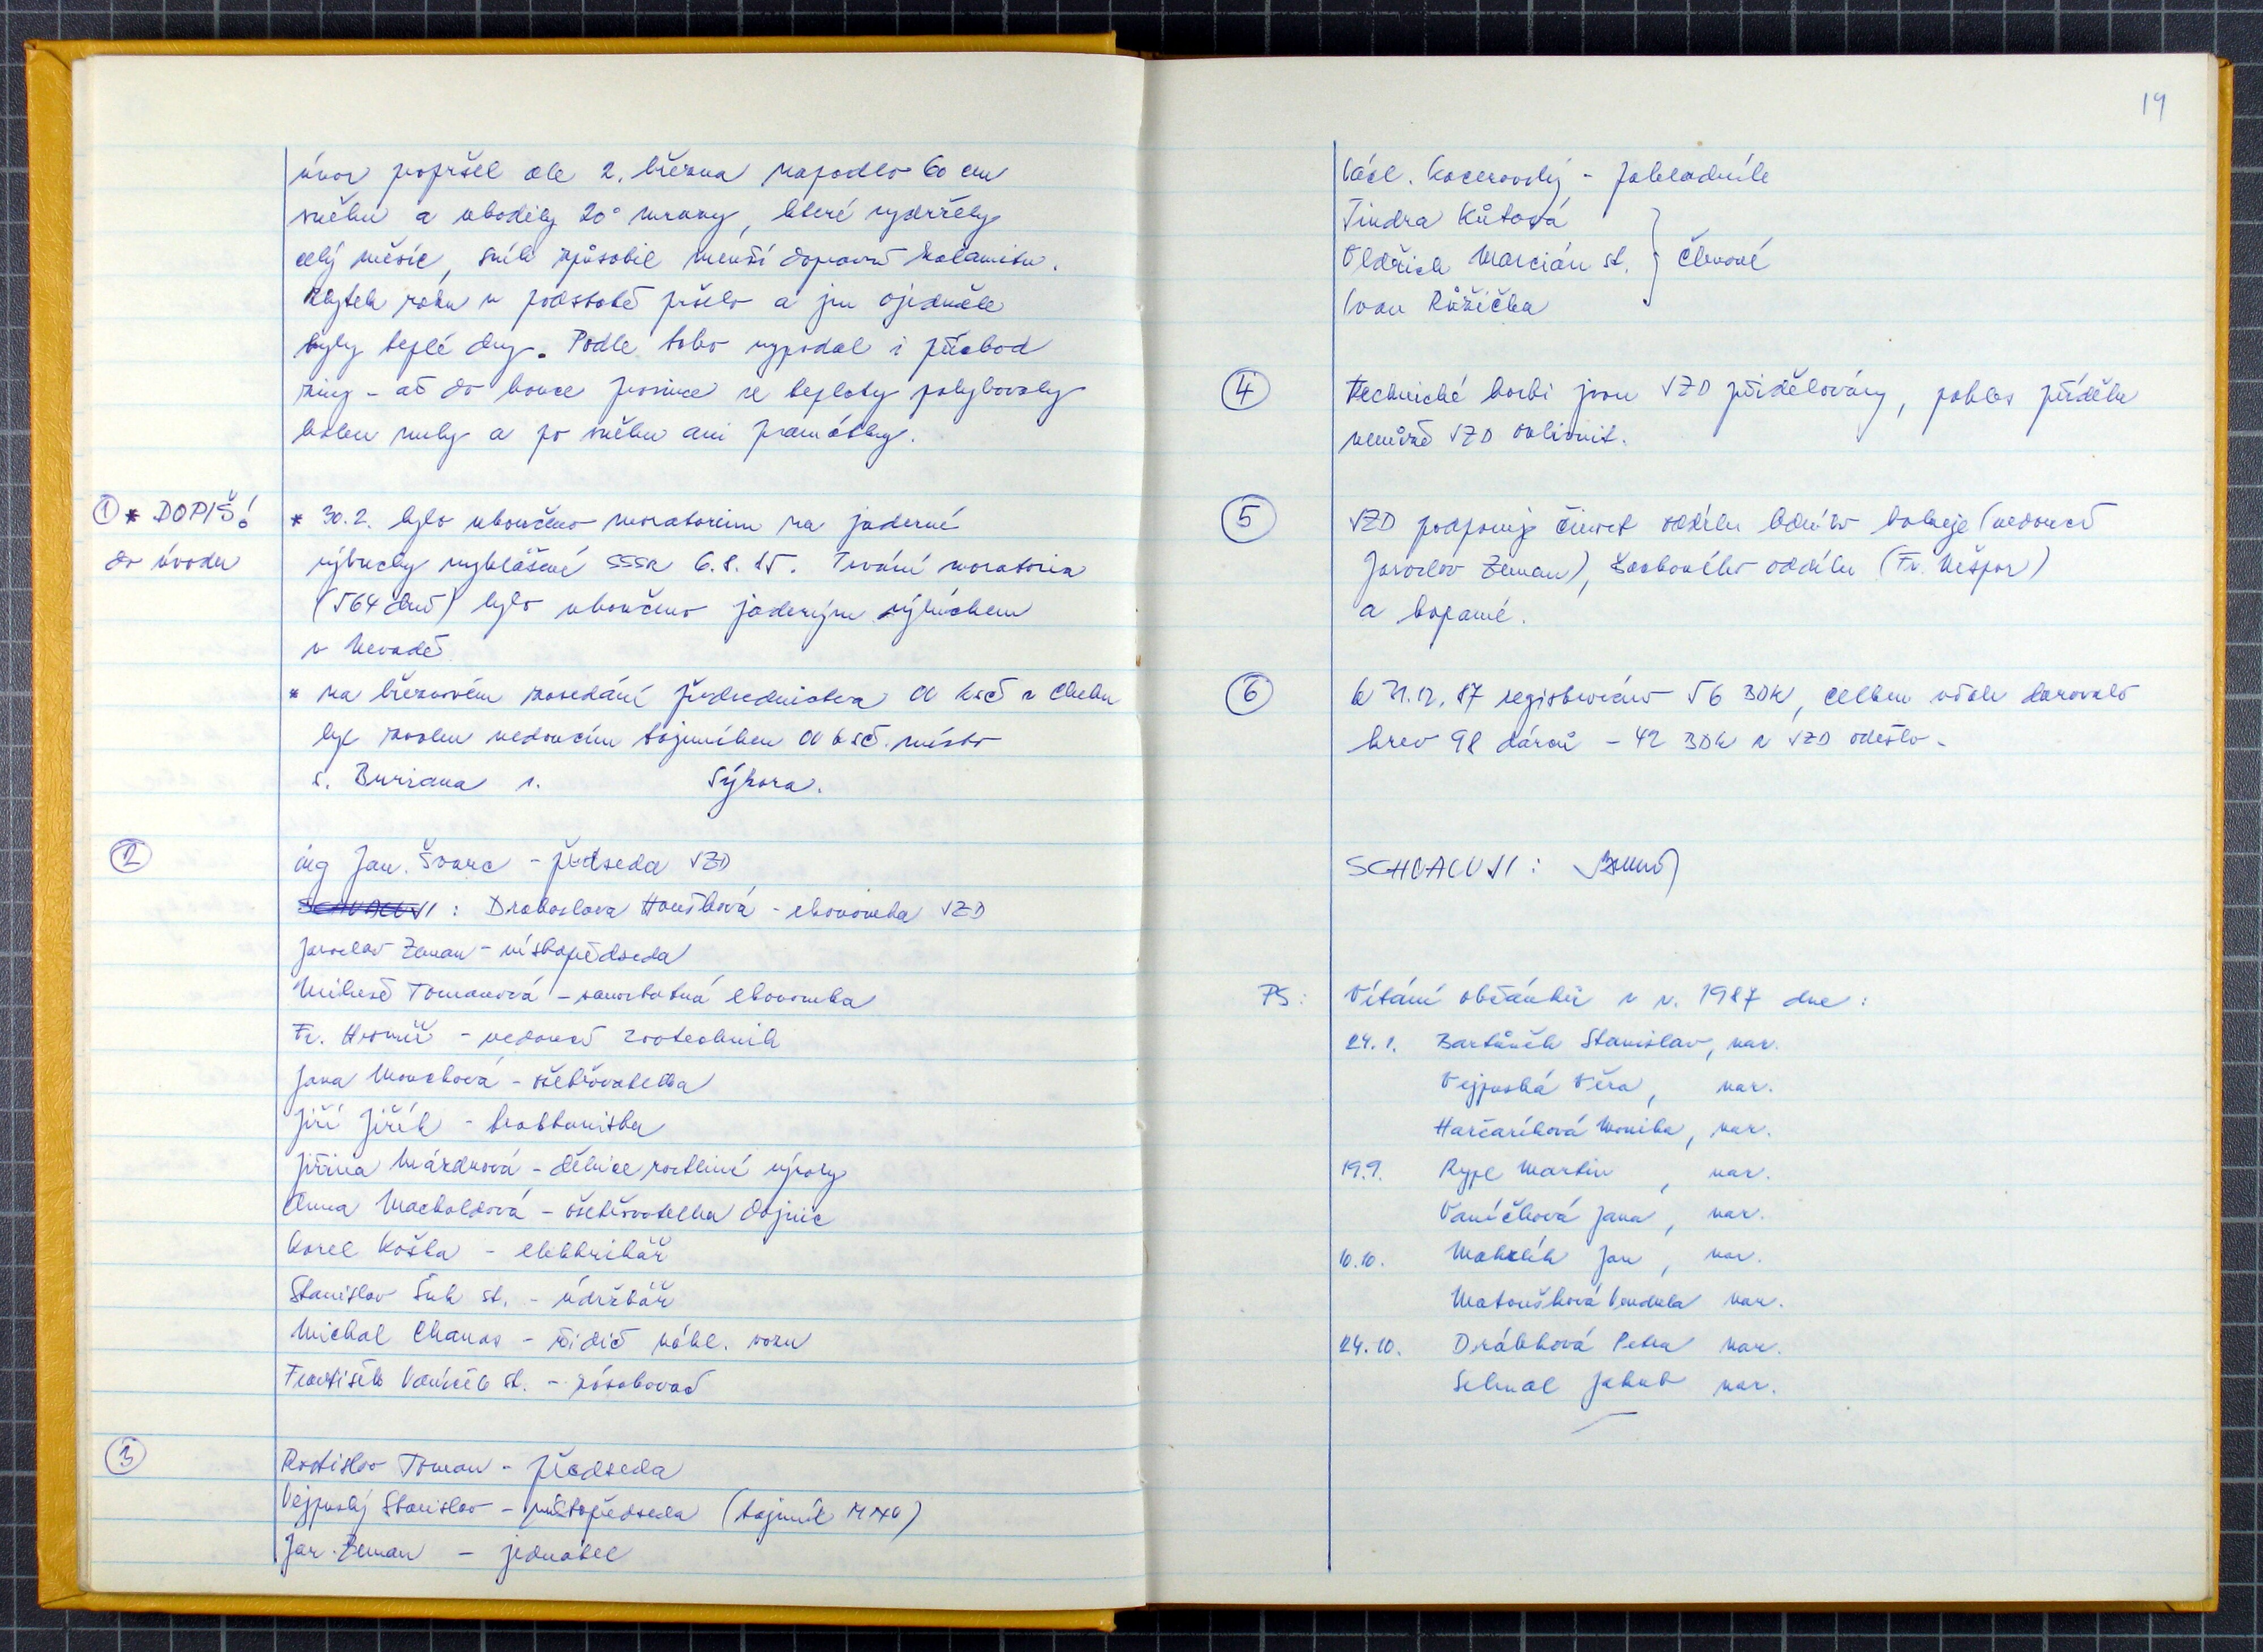 únor popršel ale 2. března napadlo 60 cm
sněhu a uhodily 20° mrazy, které vydržely
celý měsíc, sníh způsobil menší dopravní kalamitu.
Zbytek roku v podstatě pršelo a jen ojediněle
byly teplé dny. Podle toho vypadal i příchod
zimy - až do konce prosince se teploty pohybovaly
kolem nuly a po sněhu ani památky.
① * DOPIŠ!
do úvodu
* 30.2. bylo ukončeno moratorium na jaderné
výbuchy vyhlášené SSSR 6.8.85. Trvání moratoria
(564 dnů) bylo ukončeno jaderným výbuchem
v Nevadě
* na březnovém zasedání předsednictva OV KSČ v Chebu
byl zvolen vedoucím tajemníkem OV KSČ místo
s. Buriana s. Sýkora.
②
ing Jan. Švarc - předseda JZD
SCHVALUJI : Drahoslava Houšková - ekonomka JZD
Jaroslav Zeman - místopředseda
Miluše Tomanová - samostatná ekonomka
Fr. Hromíř - vedoucí zootechnik
Jana Mouchová - ošetřovatelka
Jiří Jiřík - traktorista
Jiřina Márdnová - dělnice rostlinné výroby
Anna Macholdová - ošetřovatelka dojnic
Karel Koška - elektrikář
Stanislav Šuk st. - údržbář
Michal Chanas - řidič nákl. vozu
František Vaníček st. - zásobovač
③
Rostislav Toman - předseda
Vejpuský Stanislav - místopředseda (tajemník MNV)
Jar. Zeman - jednatel
19
Václ. Kocerovský - pokladník
Jindra Kůtová
Oldřich Marcián st. } členové
Ivan Růžička
④
technické korbi jsou JZD přidělovány, pokles přídělu
nemůže JZD ovlivnit.
⑤
JZD podporuje činnost oddílu ledního hokeje (vedoucí
Jaroslav Zeman), šachového oddílu (Fr. Nešpor)
a kopané.
⑥
k 31.12.87 registrováno 56 BDK, celkem však darovalo
krev 98 dárců - 42 BDK z JZD odešlo.
SCHVALUJI :
PS :
Vítání občánků v r. 1987 dne :
24.1. Bartůněk Stanislav, nar.
Vejpuská Věra, nar.
Harčaríková Monika, nar.
19.9. Rypl Martin, nar.
Vaníčková Jana, nar.
10.10. Mahelík Jan, nar.
Matoušková Vendula nar.
24.10. Drábková Petra nar.
Selmal Jakub nar.